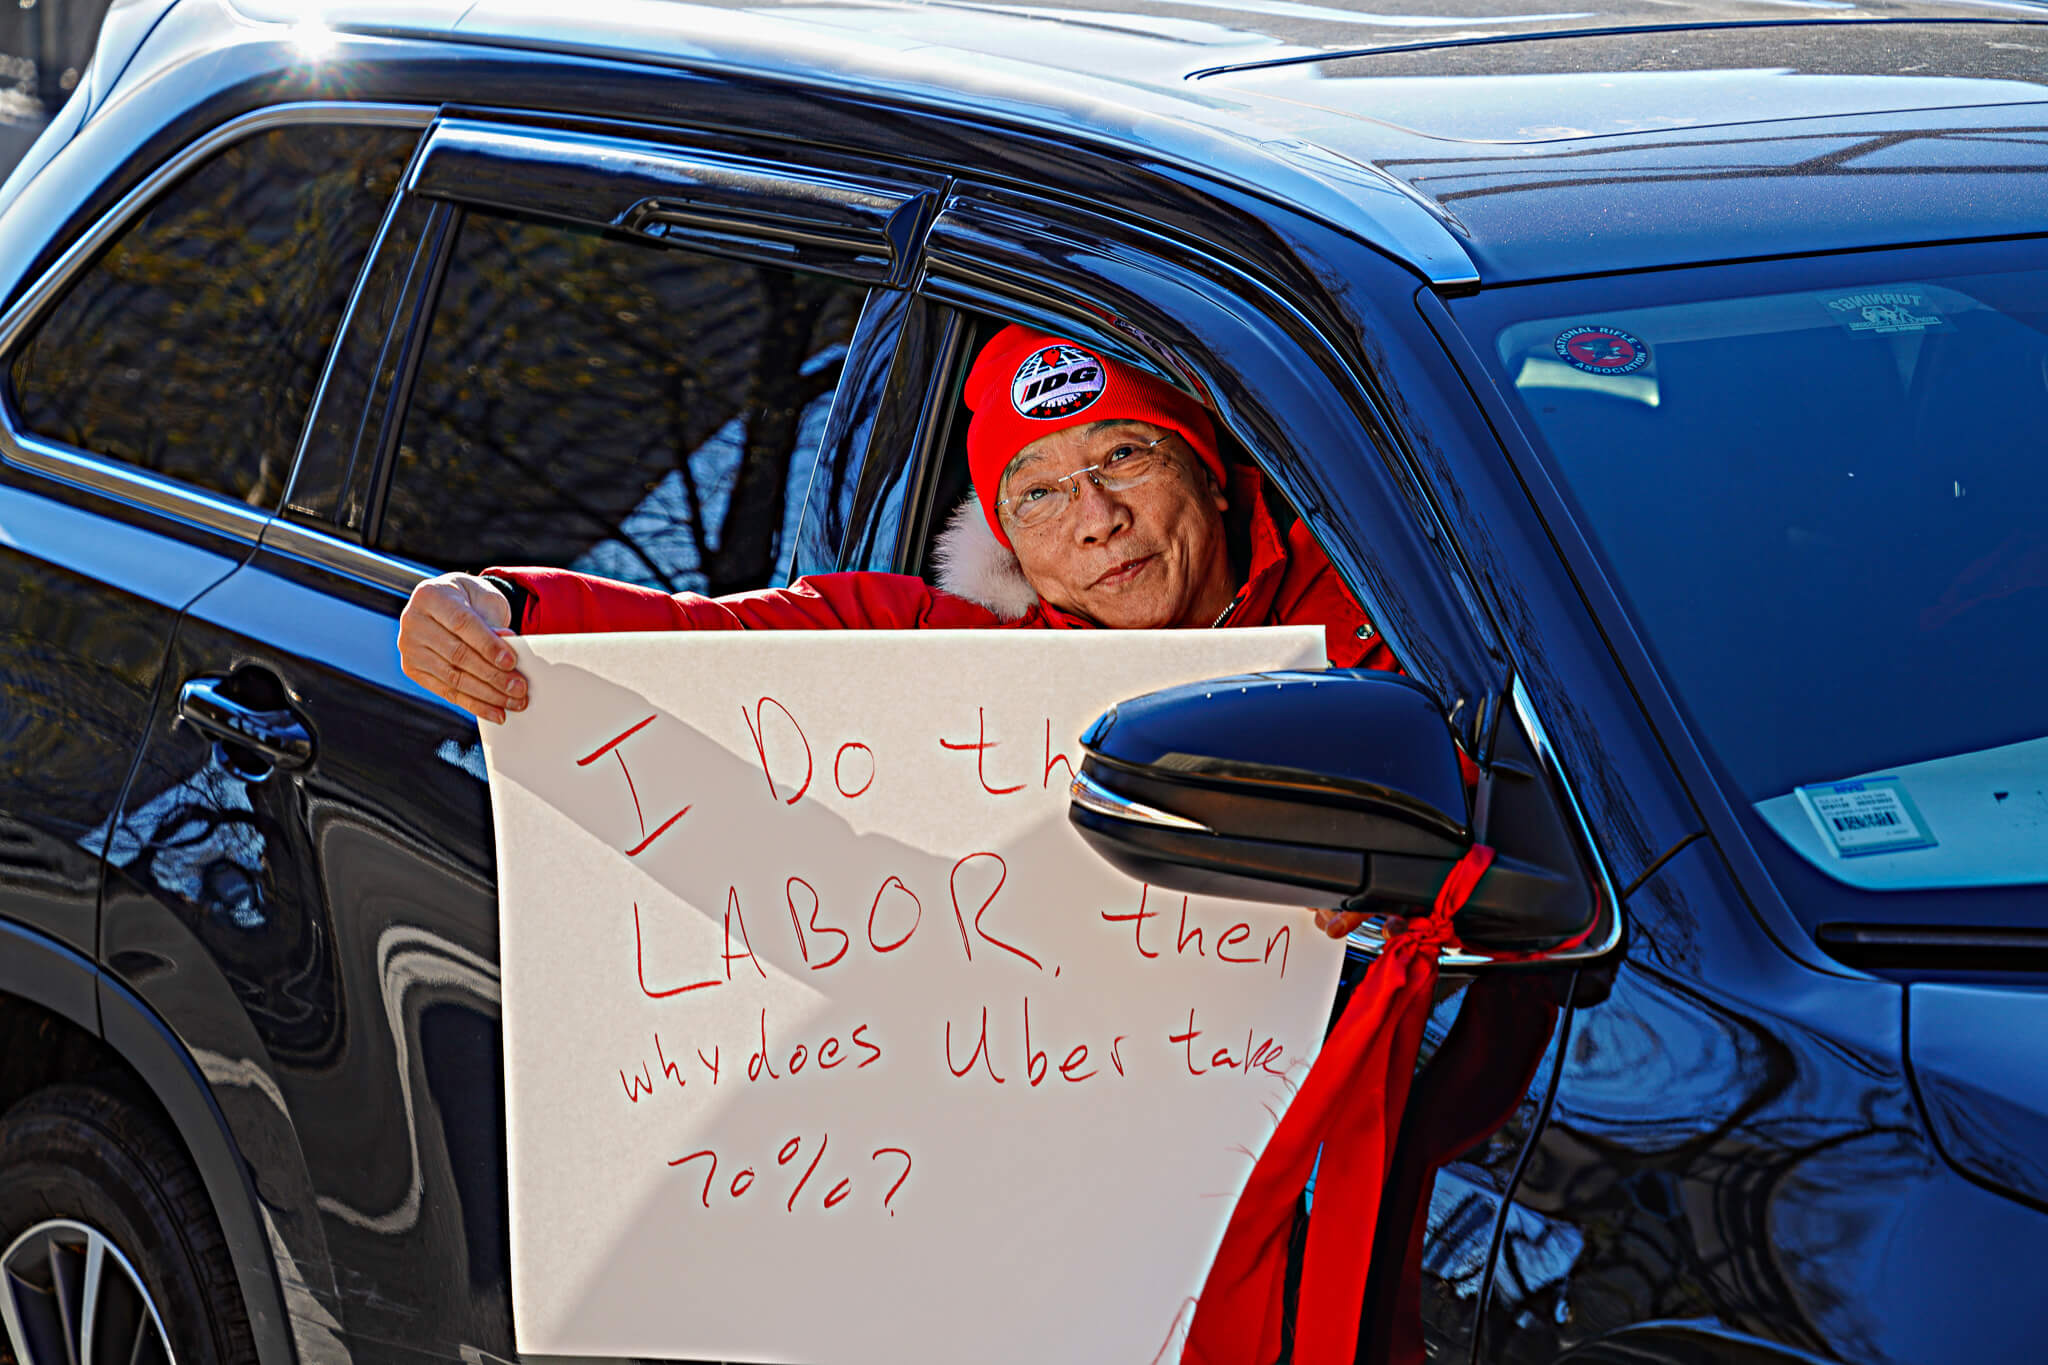 IDG
NATIONAL RIFLE
ASSOCIATION
I Do th
LABOR, then
why does Uber take
70%?